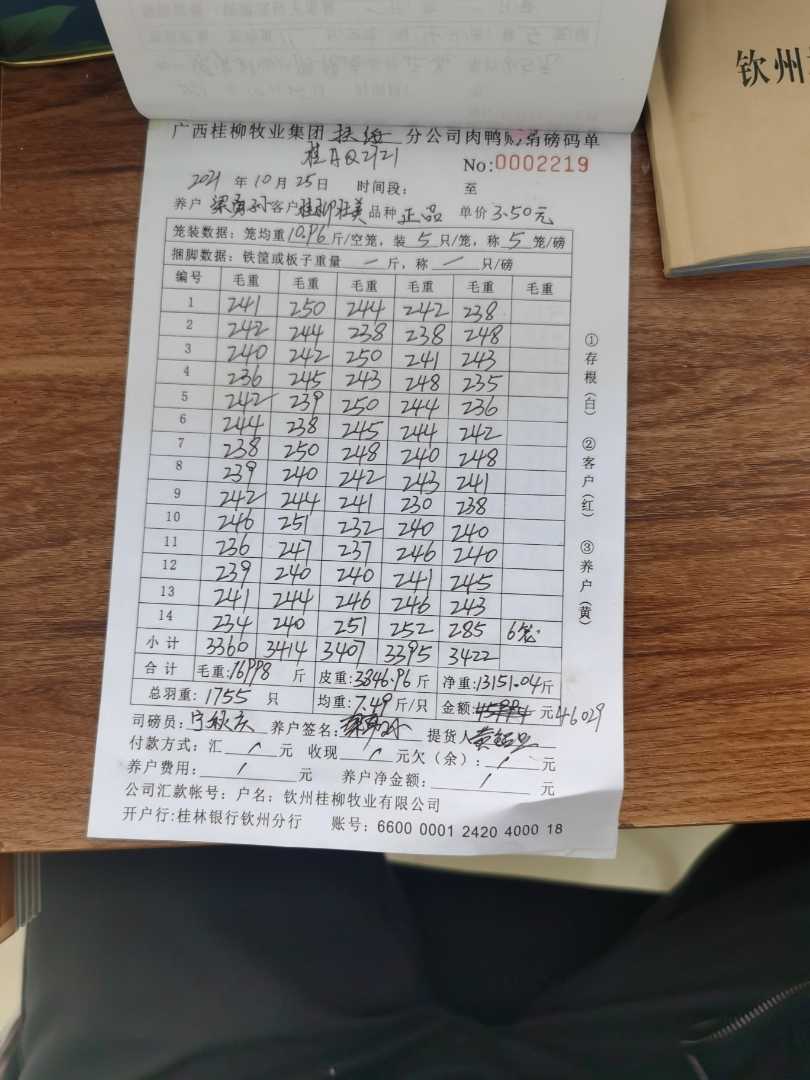 钦州
广西桂柳牧业集团 分公司肉鸭购销磅码单
桂AQ2121
No:0002219
2021 年 10 月 25 日 时间段: 至
养户 客户 品种 正品 单价 3.50元
笼装数据: 笼均重 10.96 斤/空笼, 装 5 只/笼, 称 5 笼/磅
捆脚数据: 铁筐或板子重量 一 斤, 称 一 只/磅
编号 毛重 毛重 毛重 毛重 毛重 毛重
1 241 250 244 242 238
2 242 244 238 238 248
3 240 242 250 241 243
4 236 245 243 248 235
5 242 239 250 244 236
6 244 238 245 244 242
7 238 250 248 240 248
8 239 240 242 243 241
9 242 244 241 230 238
10 246 251 232 240 240
11 236 247 237 246 240
12 239 240 240 241 245
13 241 244 246 246 243
14 234 240 251 252 285 6笼
小计 3360 3414 3407 3395 3422
合计 毛重:16998 斤 皮重:3846.96 斤 净重:13151.04斤
总羽重: 1755 只 均重: 7.49 斤/只 金额: 元 46029
司磅员: 养户签名: 提货人
付款方式: 汇 / 元 收现 / 元欠(余): / 元
养户费用: / 元 养户净金额: / 元
公司汇款帐号: 户名: 钦州桂柳牧业有限公司
开户行:桂林银行钦州分行 账号: 6600 0001 2420 4000 18
①存根(白) ②客户(红) ③养户(黄)